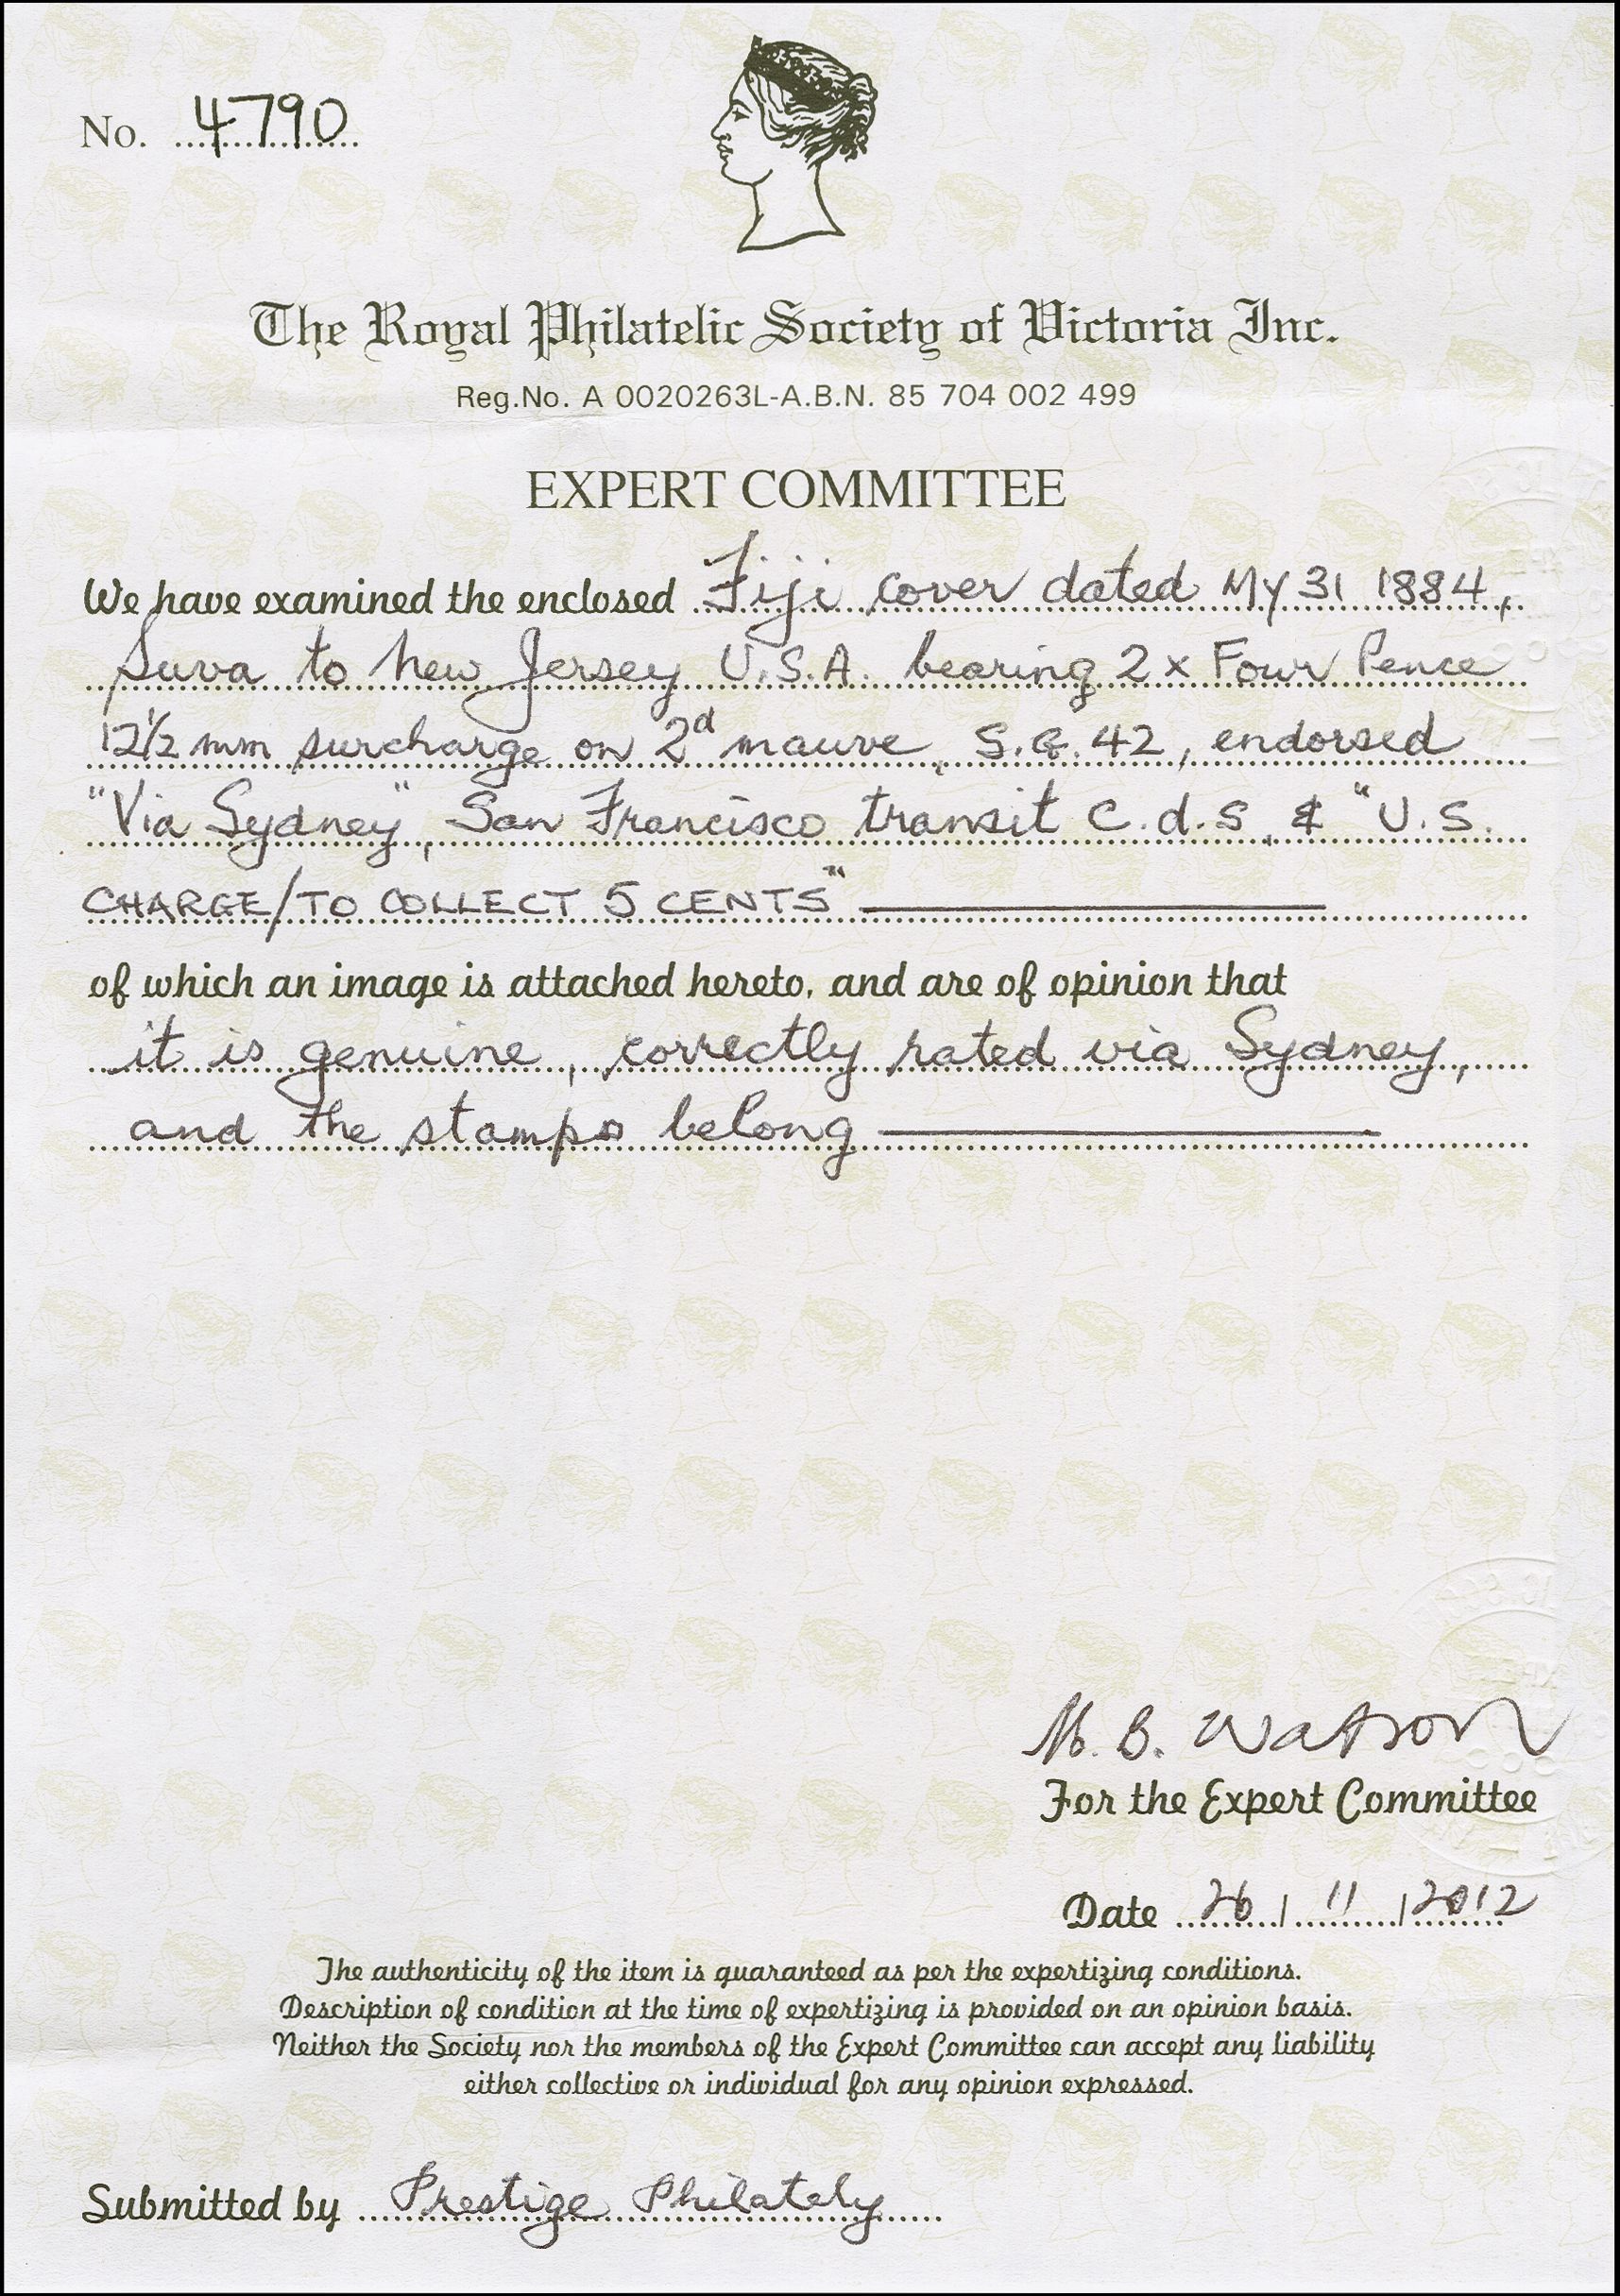 No. 4790
The Royal Philatelic Society of Victoria Inc.
Reg.No. A 0020263L-A.B.N. 85 704 002 499
EXPERT COMMITTEE
We have examined the enclosed Fiji cover dated MY 31 1884,
Suva to New Jersey U.S.A. bearing 2 x Four Pence
12½ mm surcharge on 2d mauve, S.G. 42, endorsed
"Via Sydney", San Francisco transit c.d.s. & "U.S.
CHARGE/TO COLLECT 5 CENTS"
of which an image is attached hereto, and are of opinion that
it is genuine, correctly rated via Sydney,
and the stamps belong
M. B. Watson
For the Expert Committee
Date 26 / 11 / 2012
The authenticity of the item is guaranteed as per the expertizing conditions.
Description of condition at the time of expertizing is provided on an opinion basis.
Neither the Society nor the members of the Expert Committee can accept any liability
either collective or individual for any opinion expressed.
Submitted by Prestige Philately